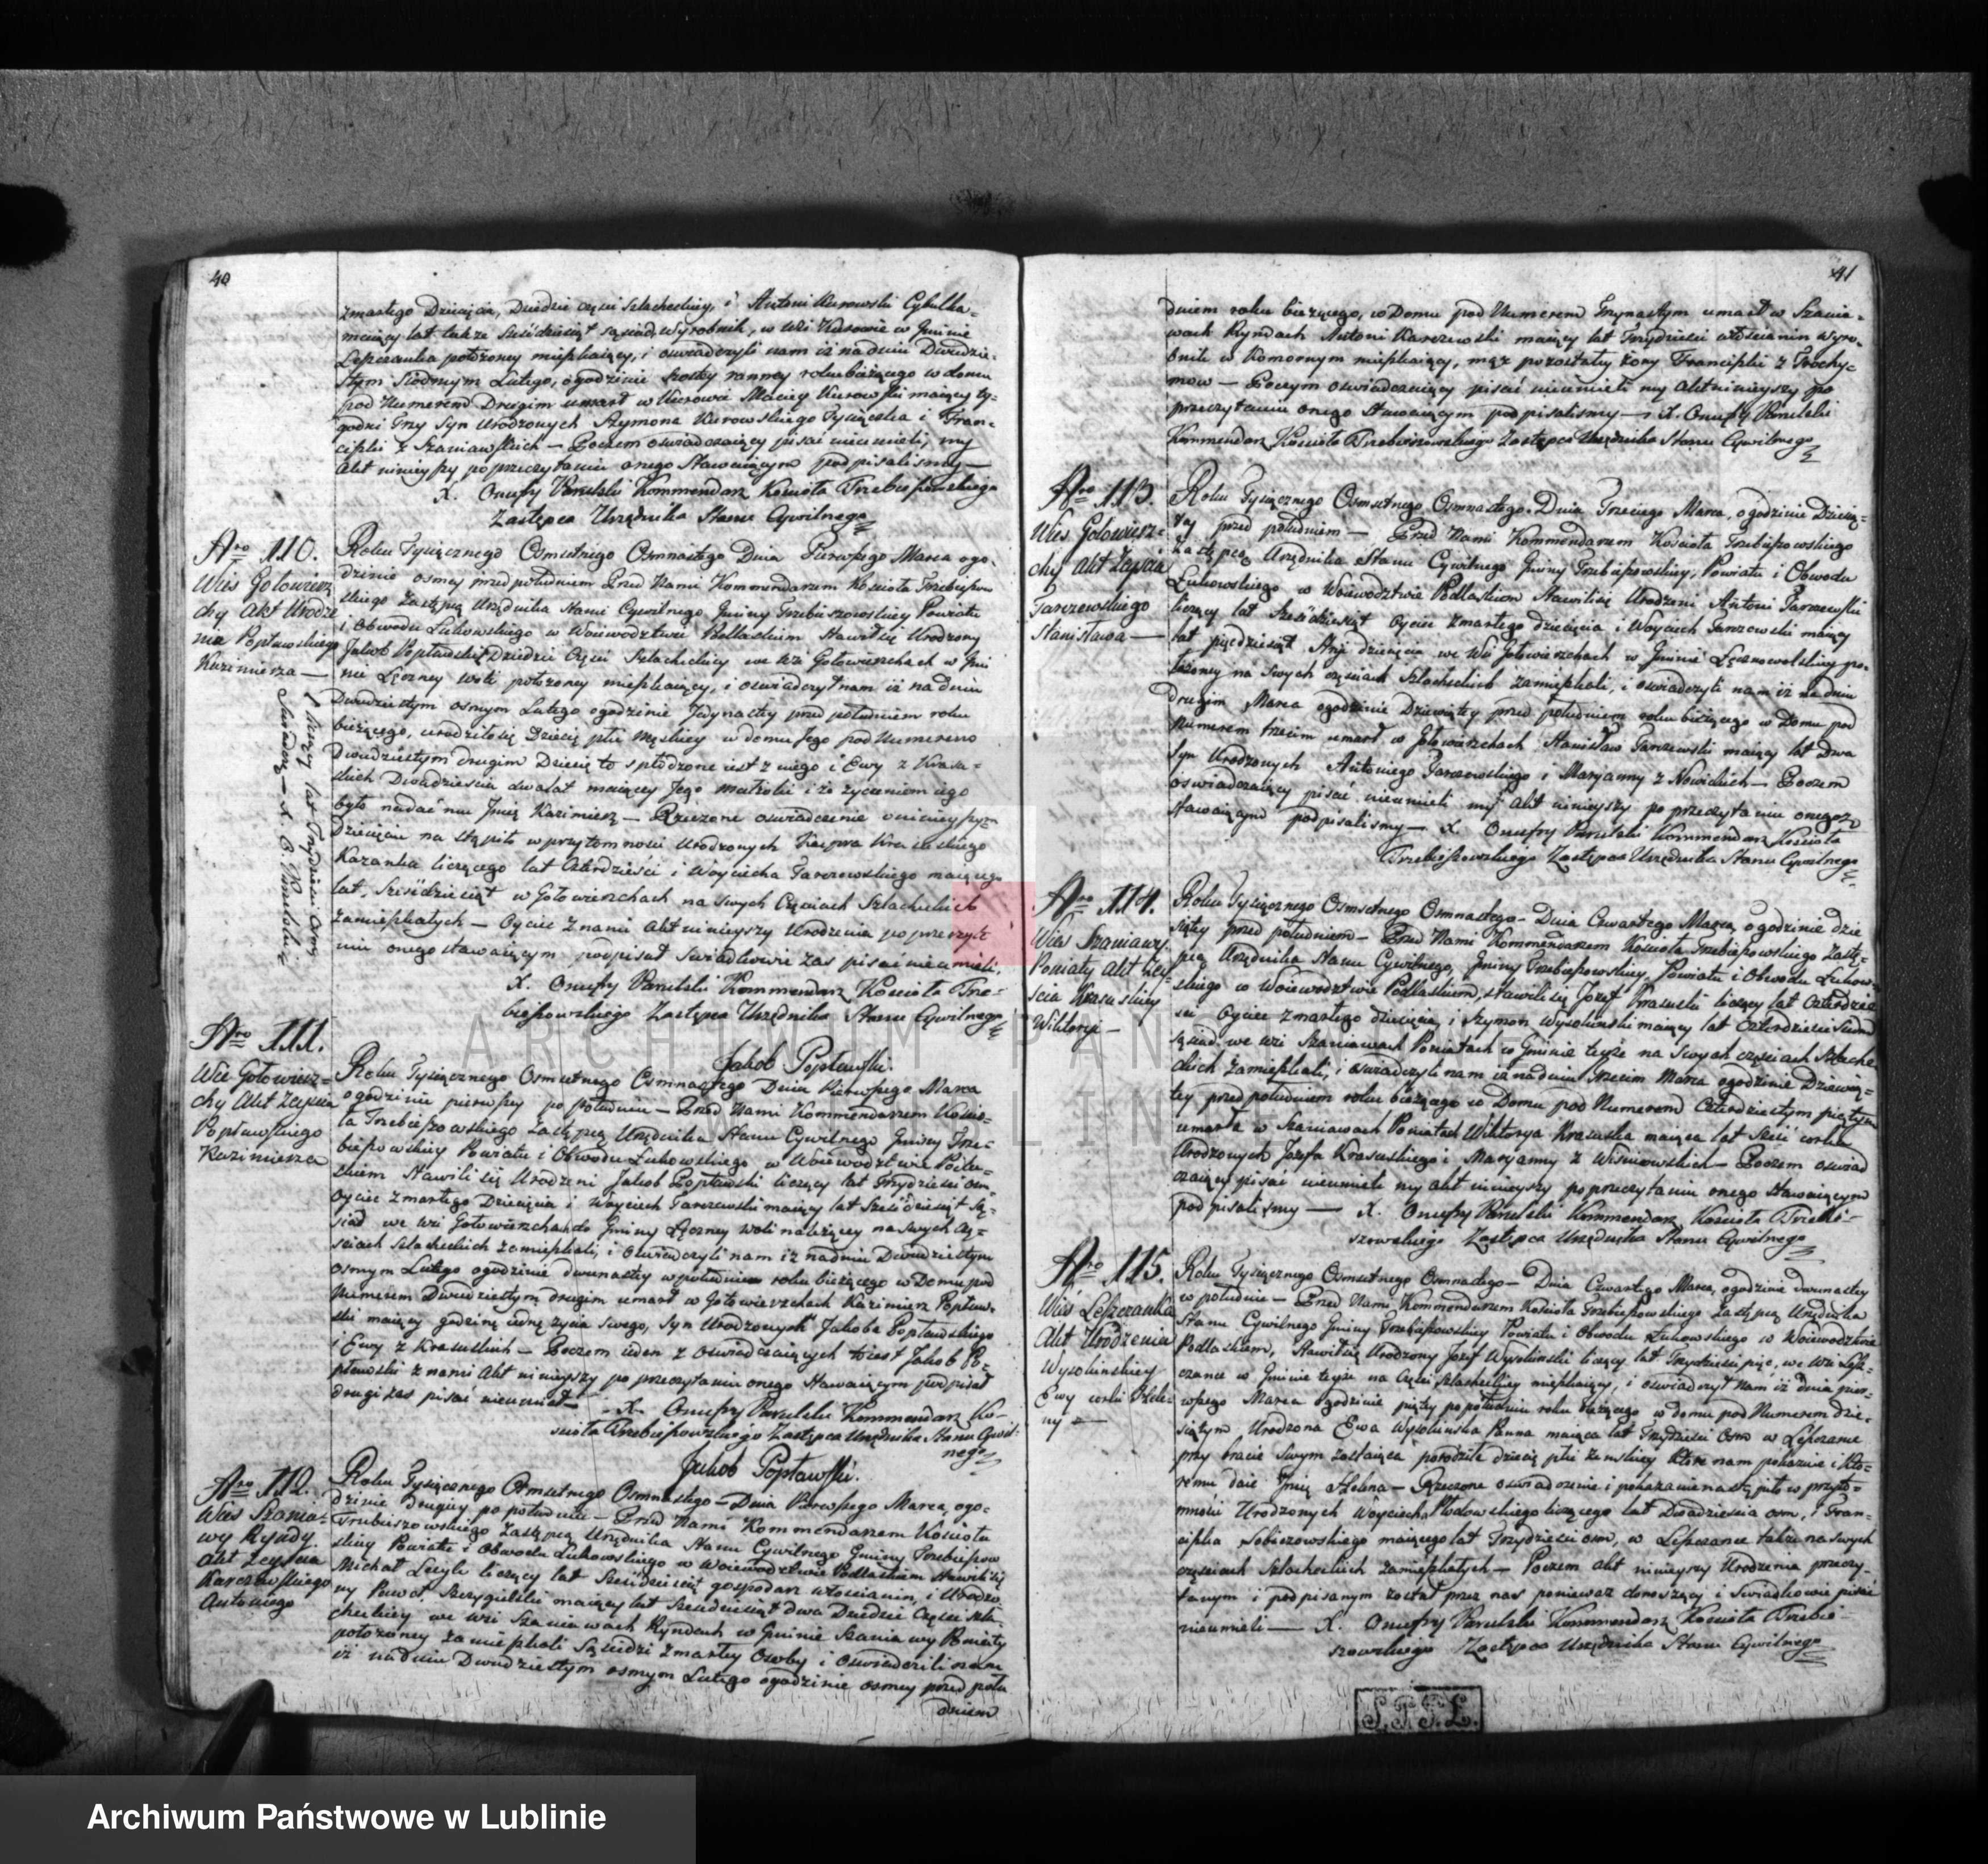 40
zmarłego Dziecięcia, Dziedzic części szlacheckiey, i Antoni Kurowski Cybulka
maiący lat także Sześćdziesiąt sąsiad, wyrobnik, w wsi Kurowie w Gminie
Leszczanka położoney mieszkaiący, i oświadczyli nam iż na dniu Dwudzie-
stym Siódmym Lutego, o godzinie szostey ranney roku bieżącego w domu
pod Numerem Drugim umarł w Kurowie Maciey Kurowski maiący ty-
godni Trzy syn Urodzonych Szymona Kurowskiego Tysiączka i Fran-
ciszki z Szaniawskich — Poczem oświadczaiący pisać nieumieli, my
Akt ninieyszy po przeczytaniu onego Stawaiącym podpisaliśmy —
X. Onufry Parulski Kommendarz Kościoła Trzebieszowskiego
Zastępca Urzędnika Stanu Cywilnego
Nro 110.
Wieś Gołowierz
chy Akt Urodze
nia Popławskiego
Kazimierza —
Roku Tysiącznego Osmsetnego Osmnastego Dnia Pierwszego Marca ogo-
dzinie osmey przed południem Przed Nami Kommendarzem Kościoła Trzebieszow
skiego Zastępcą Urzędnika Stanu Cywilnego Gminy Trzebieszowskiey Powiatu
i Obwodu Łukowskiego w Woiewodztwie Podlaskim Stawił się Urodzony
Jakob Popławski Dziedzic Części Szlacheckiey we wsi Gołowierzchach w Gmi
nie Łęczney Woli położoney mieszkaiący, i oświadczył nam iż na dniu
Dwudziestym osmym Lutego ogodzinie Jedynastey przed południem roku
bieżącego, urodziło się Dziecię płci męskiey w domu Jego pod Numerem
Dwudziestym drugim Dziecię to spłodzone iest z niego i Ewy z Krasu-
skich Dwadzieścia dwa lat maiącey Jego małżonki i że życzeniem iego
było nadać mu Imię Kazimierz — Rzeczone oświadczenie o ninieyszym
Dziecięciu nastąpiło w przytomności Urodzonych Kacpra Krasuskiego
Kazanka liczącego lat Czterdzieści i Woyciecha Tarczewskiego maiącego
lat Sześćdziesiąt w Gołowierzchach na swych Częściach Szlacheckich
zamieszkałych — Oyciec z nami Akt ninieyszy Urodzenia po przeczyta
niu onego stawaiącym podpisał Swiadkowie zaś pisać nieumieli.
X. Onufry Parulski Kommendarz Kościoła Trze-
bieszowskiego Zastępca Urzędnika Stanu Cywilnego
Jakob Popławski.
liczący lat Trzydzieści Osm
Swiadczę — X. O. Parulski
Nro 111.
Wieś Gołowierz-
chy Akt Zeyscia
Popławskiego
Kazimierza
Roku Tysiącznego Osmsetnego Osmnastego Dnia Pierwszego Marca
ogodzinie pierwszy po południu — Przed Nami Kommendarzem Kościo-
ła Trzebieszowskiego Zastępcą Urzędnika Stanu Cywilnego Gminy Trze-
bieszowskiey Powiatu i Obwodu Łukowskiego w Woiewodztwie Podla-
skiem Stawili się Urodzeni Jakob Popławski liczący lat Trzydzieści osm
Oyciec zmarłego Dziecięcia i Woyciech Tarczewski maiący lat Sześćdziesiąt Są-
siad we wsi Gołowierzchach do Gminy Łęczney Woli należącey na swych Czę-
ściach Szlacheckich zamieszkali, i oświadczyli nam iż na dniu Dwudziestym
osmym Lutego ogodzinie dwunastey w południe roku bieżącego w Domu pod
Numerem Dwudziestym drugim umarł w Gołowierzchach Kazimierz Popław-
ski maiący godzinę iedną życia swego, Syn Urodzonych Jakoba Popławskiego
i Ewy z Krasuskich — Poczem ieden z Oświadczaiących to iest Jakob Po-
pławski z nami Akt ninieyszy po przeczytaniu onego Stawaiącym podpisał
drugi zas pisać nieumiał —
X. Onufry Parulski Kommendarz Ko-
ścioła Trzebieszowskiego Zastępca Urzędnika Stanu Cywil-
nego
Jakob Popławski.
Nro 112.
Wieś Szania-
wy Ryndy.
Akt Zeyscia
Karczewskiego
Antoniego
Roku Tysiącznego Osmsetnego Osmnastego — Dnia Pierwszego Marca, ogo-
dzinie drugiey po południu — Przed Nami Kommendarzem Kościoła
Trzebieszowskiego Zastępcą Urzędnika Stanu Cywilnego Gminy Trzebieszow
skiey Powiatu i Obwodu Łukowskiego w Woiewodztwie Podlaskiem Stawili się
Michał liczący lat Sześćdziesiąt gospodarz włościanin, i Urodzo-
ny Paweł Szczygielski maiący lat Sześćdziesiąt dwa Dziedzic Części Szla-
checkiey we wsi Szaniawach Ryndach w Gminie Szaniawy Poniaty
położoney zamieszkali Sąsiedzi zmarłey Osoby i Oświadczyli nam
iż na dniu Dwudziestym osmym Lutego ogodzinie osmey przed połu
dniem
41
dniem roku bieżącego, w Domu pod Numerem Trzynastym umarł w Szania-
wach Ryndach Antoni Karczewski maiący lat Trzydzieści włościanin wyro-
bnik w Komornym mieszkaiący, mąż pozostałey żony Franciszki z Trochy-
mow — Poczym oświadczaiący pisać nieumieli my Akt ninieyszy po
przeczytaniu onego Stawaiącym podpisaliśmy — X. Onufry Parulski
Kommendarz Kościoła Trzebieszowskiego Zastępca Urzędnika Stanu Cywilnego
Nro 113.
Wieś Gołowierz-
chy Akt Zeyscia
Tarczewskiego
Stanisława —
Roku Tysiącznego Osmsetnego Osmnastego. Dnia Trzeciego Marca, ogodzinie Dziesią-
tey przed południem — Przed Nami Kommendarzem Kościoła Trzebieszowskiego
Zastępcą Urzędnika Stanu Cywilnego Gminy Trzebieszowskiey, Powiatu i Obwodu
Łukowskiego w Woiewodztwie Podlaskim Stawili się Urodzeni Antoni Tarczewski
liczący lat Sześćdziesiąt Oyciec zmarłego dziecięcia i Woyciech Tarczewski maiący
lat pięćdziesiąt Stryi dziecięcia we Wsi Gołowierzchach w Gminie Łęcznowolskiey po-
łożoney na swych częściach Szlacheckich zamieszkali, i oświadczyli nam iż na dniu
drugim Marca ogodzinie Dziewiątey przed południem roku bieżącego w Domu pod
Numerem trzecim umarł w Gołowierzchach Stanisław Tarczewski maiący lat Dwa
Syn Urodzonych Antoniego Tarczewskiego i Maryanny z Nowickich — Poczem
oświadczaiący pisać nieumieli my Akt ninieyszy po przeczytaniu onegoż
Stawaiącym podpisaliśmy — X. Onufry Parulski Kommendarz Kościoła
Trzebieszowskiego Zastępca Urzędnika Stanu Cywilnego
Nro 114.
Wieś Szaniawy
Poniaty Akt Zey-
scia Krasuskiey
Wiktoryi —
Roku Tysiącznego Osmsetnego Osmnastego — Dnia Czwartego Marca, ogodzinie dzie
siątey przed południem — Przed Nami Kommendarzem Kościoła Trzebieszowskiego Zastę-
pcą Urzędnika Stanu Cywilnego, Gminy Trzebieszowskiey, Powiatu i Obwodu Łukow-
skiego w Woiewodztwie Podlaskiem, stawili się Jozef Krasuski liczący lat Czterdzie
ści Oyciec zmarłego dziecięcia i Szymon Wysokinski maiący lat Czterdzieści Siedm
Sąsiad we wsi Szaniawach Poniatach w Gminie teyże na swych częściach Szlache
ckich zamieszkali, i oświadczyli nam iż na dniu trzecim Marca ogodzinie Dziewią-
tey przed południem roku bieżącego w Domu pod Numerem Czterdziestym piątym
umarła w Szaniawach Poniatach Wiktorya Krasuska maiąca lat Sześć corka
Urodzonych Jozefa Krasuskiego i Maryanny z Wiśniewskich — Poczem oświad
czaiący pisać nieumieli my akt ninieyszy po przeczytaniu onego Stawaiącym
podpisaliśmy — X. Onufry Parulski Kommendarz Kościoła Trzebie-
szowskiego Zastępca Urzędnika Stanu Cywilnego
Nro 115.
Wieś Leszczanka
Akt Urodzenia
Wysokinskiey
Ewy corki Hele-
ny —
Roku Tysiącznego Osmsetnego Osmnastego — Dnia Czwartego Marca, ogodzinie dwunastey
w południe — Przed Nami Kommendarzem Kościoła Trzebieszowskiego Zastępcą Urzędnika
Stanu Cywilnego Gminy Trzebieszowskiey Powiatu i Obwodu Łukowskiego w Woiewodztwie
Podlaskiem, Stawił się Urodzony Jozef Wysokinski liczący lat Trzydzieści pięć, we Wsi Lesz-
czance w Gminie teyże na Części Szlacheckiey mieszkaiący, i oświadczył Nam iż dnia pier-
wszego Marca ogodzinie piątey po południu roku bieżącego w domu pod Numerem Dzie-
siątym Urodzona Ewa Wysokinska Panna maiąca lat Trzydzieści Osm w Leszczance
przy bracie swym zostaiąca porodziła dziecię płci żenskiey które nam pokazuie i któ-
remu daie Imię Helena — Rzeczone oświadczenie i pokazanie nastąpiło w przyto-
mności Urodzonych Woyciecha Płudowskiego liczącego lat Dwadzieścia osm, i Fran-
ciszka Sobiczewskiego maiącego lat Trzydzieści osm, w Leszczance także na swych
częściach Szlacheckich zamieszkałych — Poczem akt ninieyszy Urodzenia przeczy-
tanym i podpisanym został przez nas ponieważ donoszący i Swiadkowie pisać
nieumieli — X. Onufry Parulski Kommendarz Kościoła Trzebie-
szowskiego Zastępca Urzędnika Stanu Cywilnego
ARCHIWUM PAŃSTWOWE
W LUBLINIE
Archiwum Państwowe w Lublinie